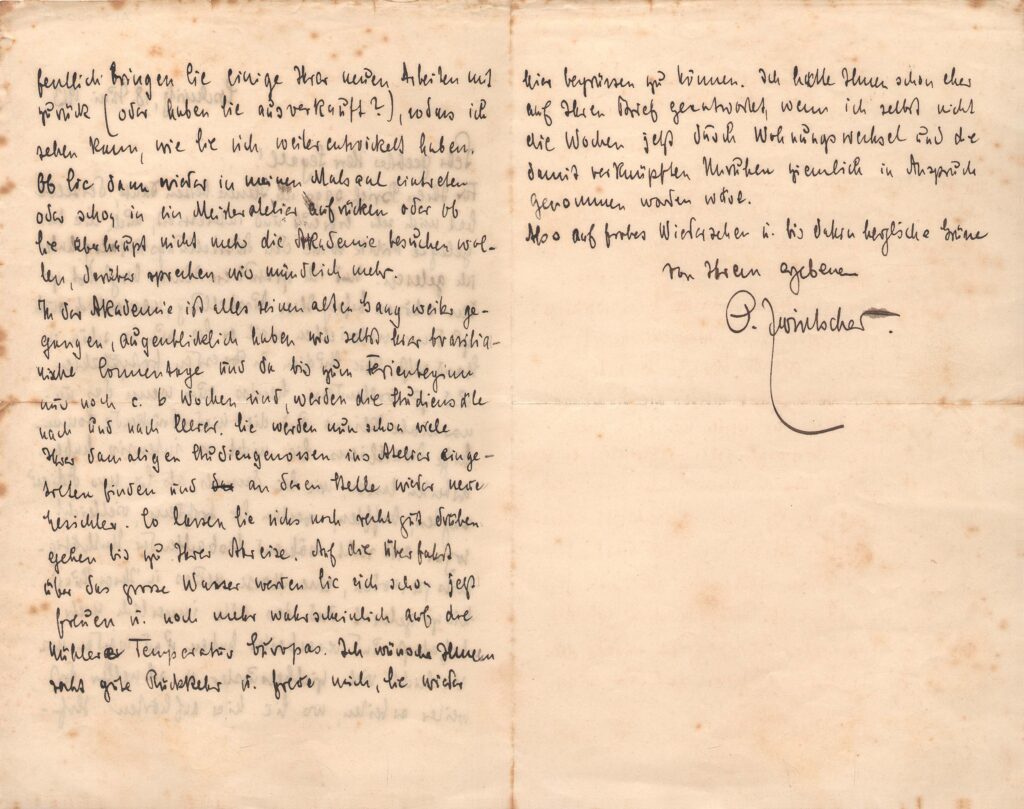 fentlich bringen Sie einige Ihrer neuen Arbeiten mit
zurück (oder haben Sie ausverkauft?), sodass ich
sehen kann, wie Sie sich weiterentwickelt haben.
Ob Sie dann wieder in meinen Malsaal eintreten
oder schon in ein Meisteratelier aufrücken oder ob
Sie überhaupt nicht mehr die Akademie besuchen wol-
len, darüber sprechen wir mündlich mehr.
In der Akademie ist alles seinen alten Gang weiter ge-
gangen, augenblicklich haben wir selbst hier brasilia-
nische Sonnentage und da bis zum Ferienbeginn
nur noch c. 6 Wochen sind, werden die Studiensäle
nach und nach leerer. Sie werden nun schon viele
Ihrer damaligen Studiengenossen ins Atelier einge-
treten finden und an deren Stelle wieder neue
Gesichter. So lassen Sie sichs noch recht gut drüben
gehen bis zu Ihrer Abreise. Auf die Überfahrt
über das grosse Wasser werden Sie sich schon jetzt
freuen u. noch mehr wahrscheinlich auf die
kühlere Temperatur Europas. Ich wünsche Ihnen
recht gute Rückkehr u. freue mich, Sie wieder
hier begrüssen zu können. Ich hätte Ihnen schon eher
auf Ihren Brief geantwortet, wenn ich selbst nicht
die Wochen jetzt durch Wohnungswechsel und die
damit verknüpften Unruhen ziemlich in Anspruch
genommen worden wäre.
Also auf frohes Wiedersehen u. bis dahin herzliche Grüsse
von Ihrem ergebenen
O. Zwintscher.